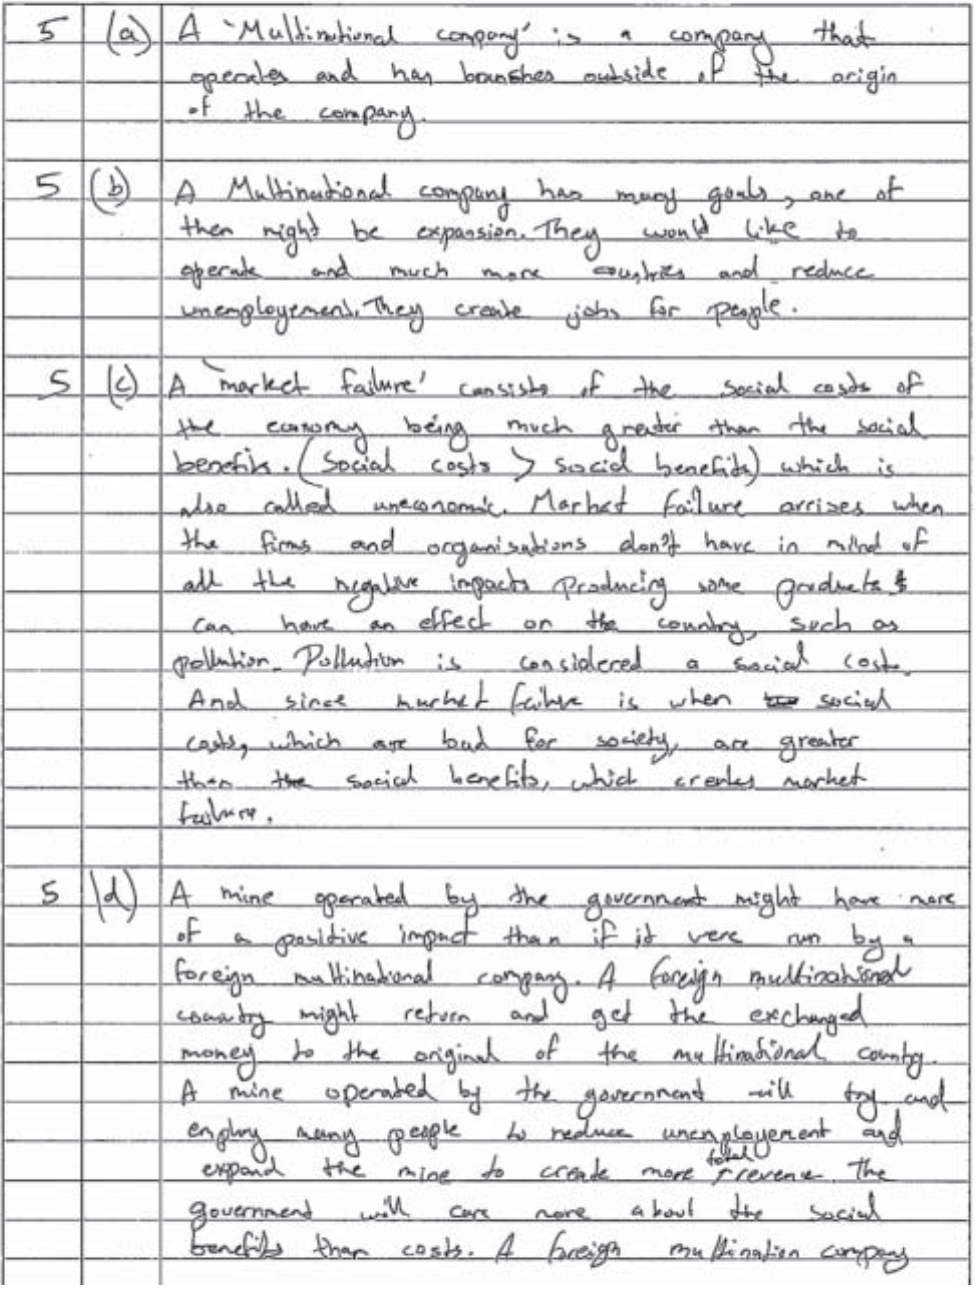 5 (a) A 'Multinational company' is a company that
operates and has branshes outside of the origin
of the company.
5 (b) A Multinational company has many goals, one of
then might be expansion. They would like to
operate and much more countries and reduce
unemployement. They create jobs for people.
5 (c) A 'market failure' consists of the social costs of
the economy being much greater than the social
benefits. (Social costs > social benefits) which is
also called uneconomic. Market failure arrises when
the firms and organisations don't have in mind of
all the negative impacts producing some products
can have an effect on the country, such as
pollution. Pollution is considered a social cost.
And since market failure is when social
costs, which are bad for society, are greater
than the social benefits, which creates market
failure.
5 (d) A mine operated by the government might have more
of a positive impact than if it were run by a
foreign multinational company. A foreign multinational
country might return and get the exchanged
money to the original of the multinational country.
A mine operated by the government will try and
employ many people to reduce unemployement and
expand the mine to create more total revenue. The
government will care more about the social
benefits than costs. A foreign multination company